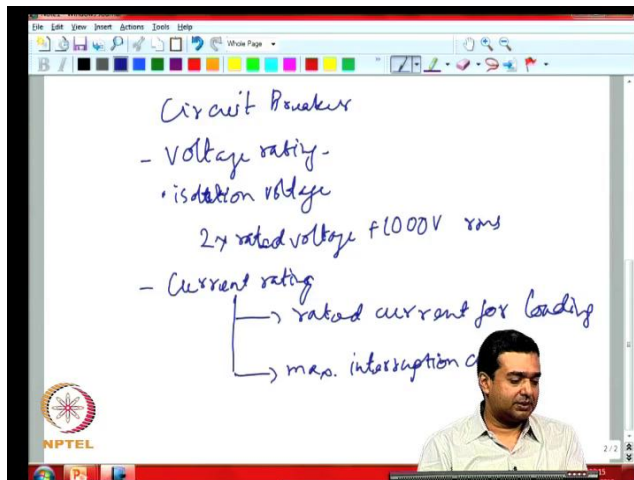 File Edit View Insert Actions Tools Help
Whole Page
Circuit Breaker
- Voltage rating -
• isolation voltage
2x rated voltage +1000V rms
- Current rating
→ rated current for loading
→ max. interruption c
NPTEL
2/2